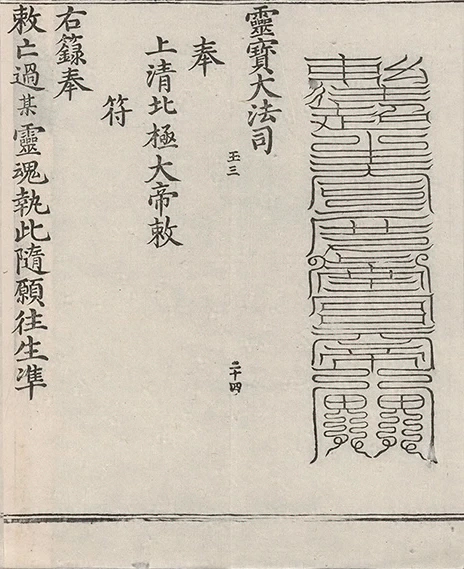 靈寶大法司
玉三
二十四
奉
上清北極大帝敕
符
右籙奉
敕亡過某靈魂執此隨願往生準